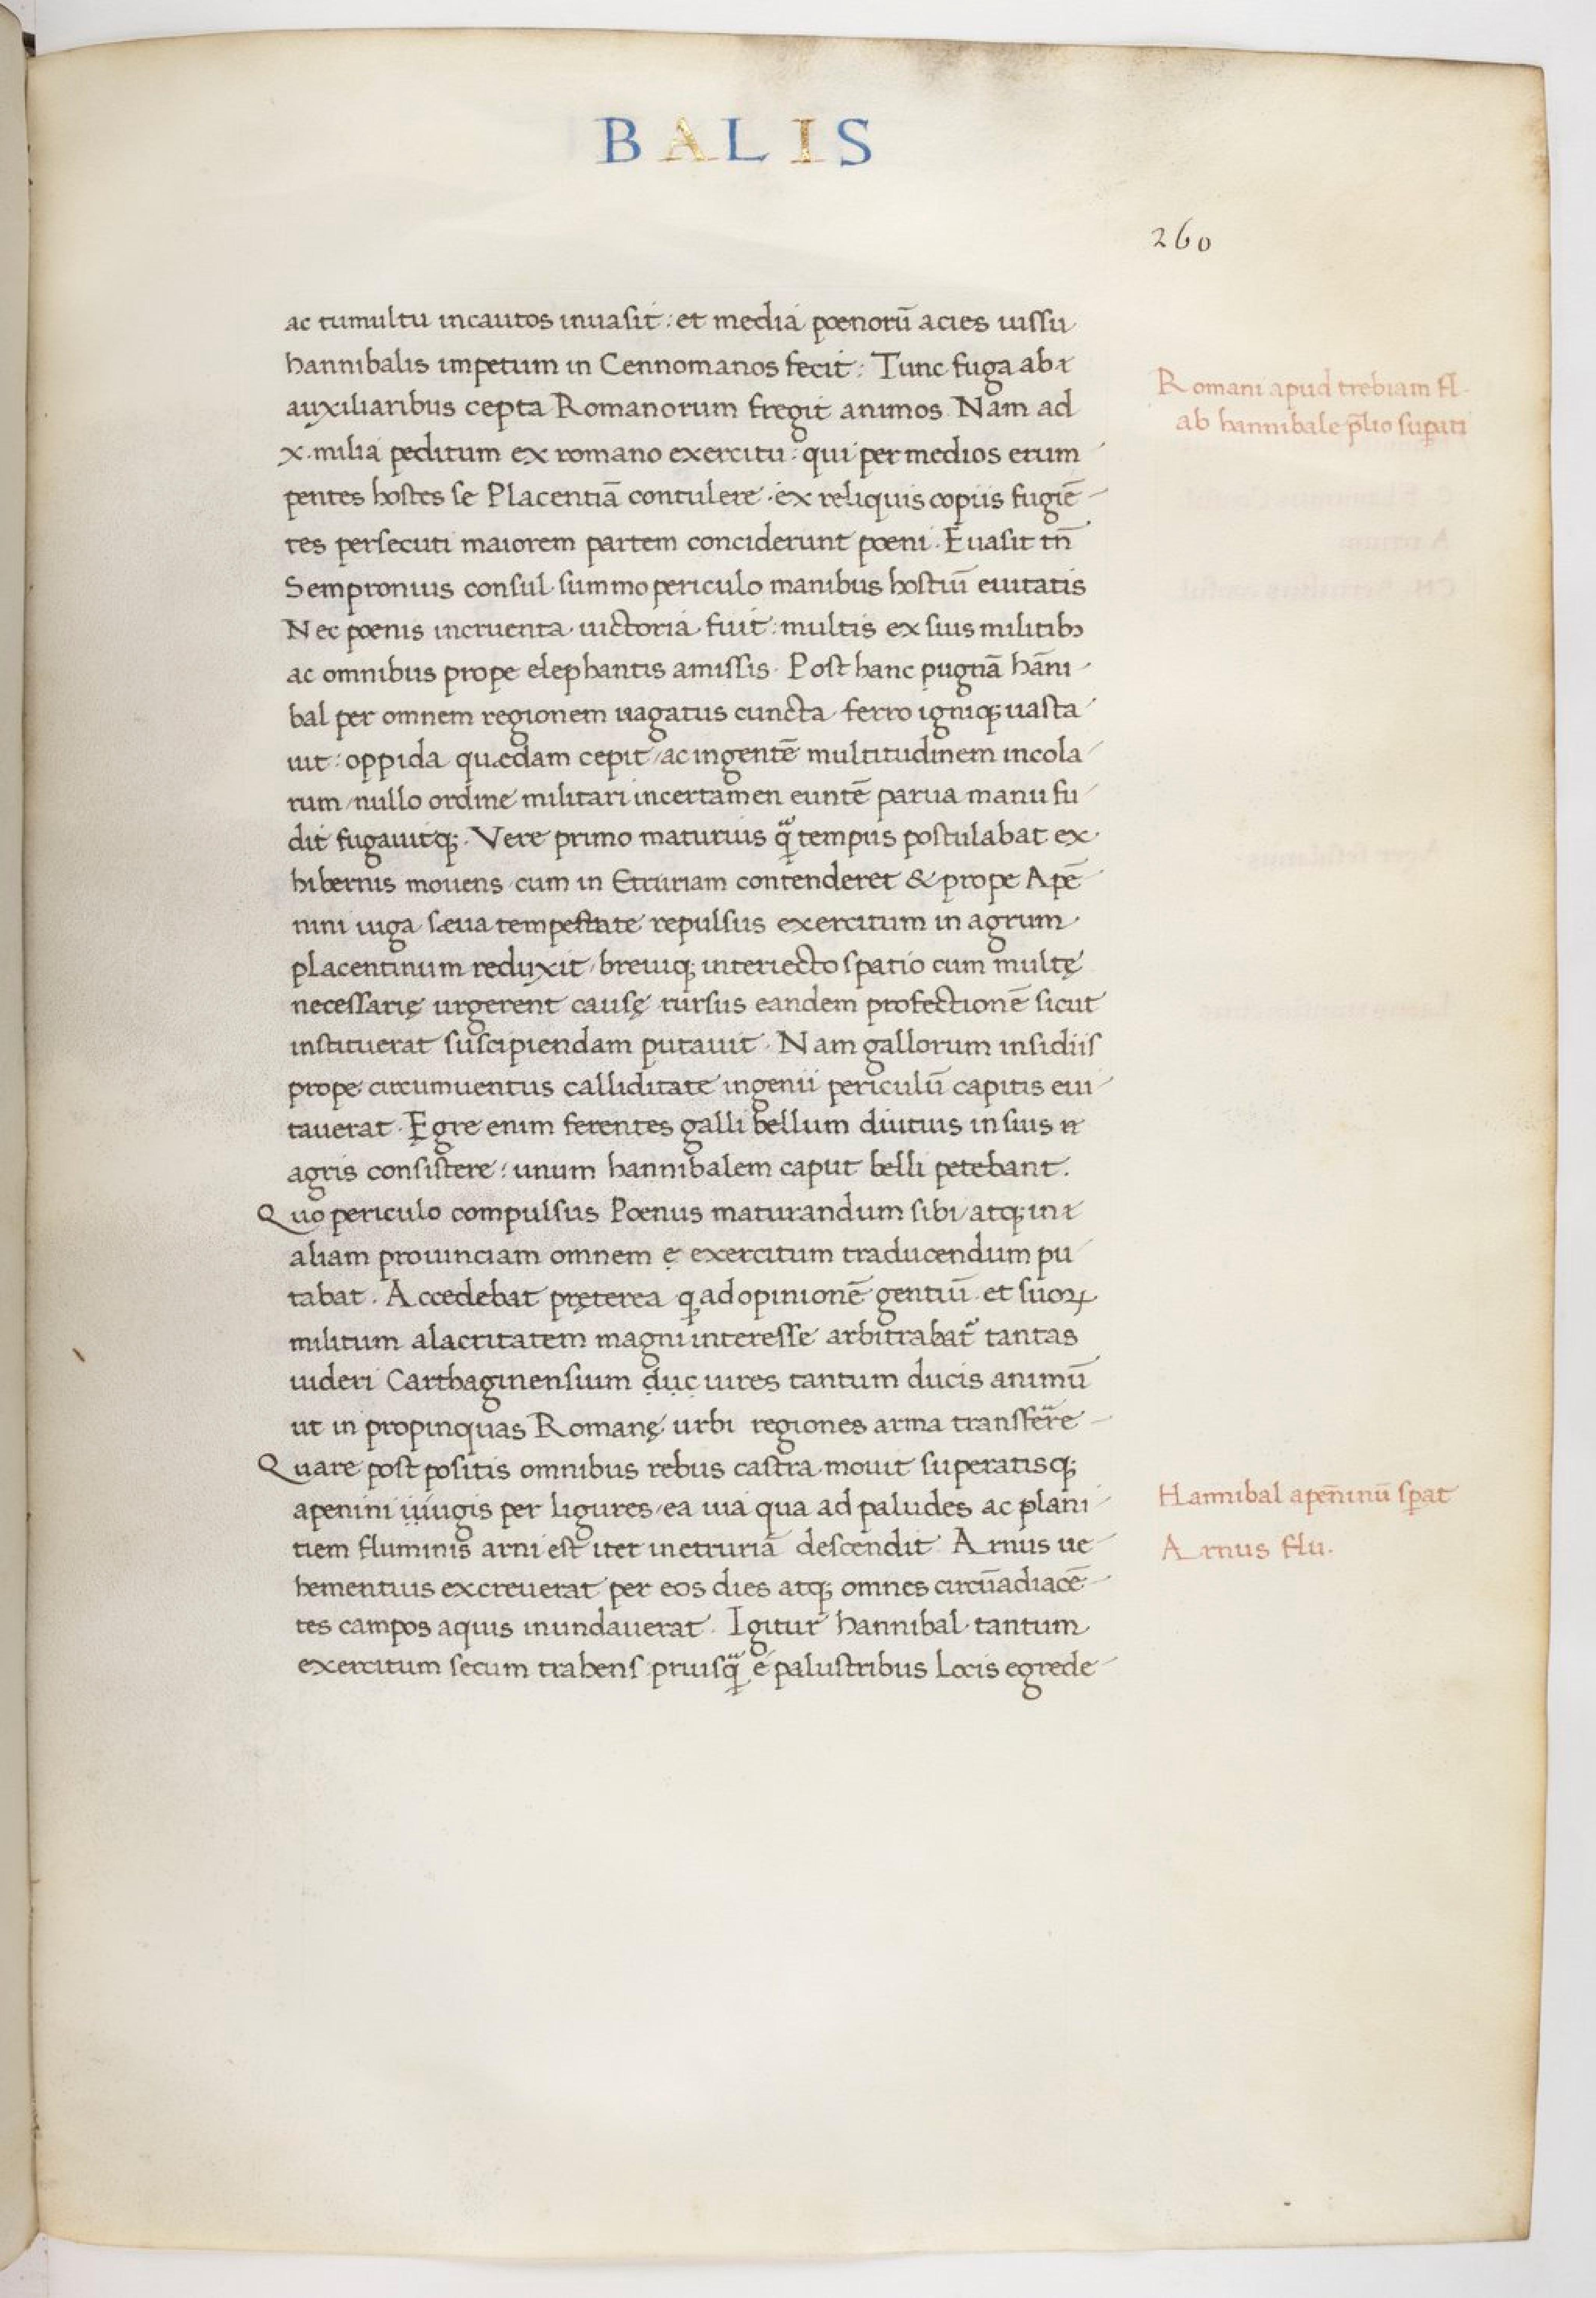 BALIS
260
ac tumultu incautos inuasit: et media poenorū acies iussu
hannibalis impetum in Cennomanos fecit: Tunc fuga ab
auxiliaribus cepta Romanorum fregit animos. Nam ad
x. milia peditum ex romano exercitu: qui per medios erum
pentes hostes se Placentiā contulere. ex reliquis copiis fugiē
tes persecuti maiorem partem conciderunt poeni. Euasit tn̄
Sempronius consul summo periculo manibus hostiū euitatis
Nec poenis incruenta uictoria fuit: multis ex suis militibꝫ
ac omnibus prope elephantis amissis. Post hanc pugnā hāni
bal per omnem regionem uagatus cuncta ferro igniqꝫ uasta
uit: oppida quædam cepit / ac ingentē multitudinem incola
rum / nullo ordine militari incertamen euntē parua manu fu
dit fugauitqꝫ. Vere primo maturius qᷓ tempus postulabat ex
hibernis mouens cum in Etruriam contenderet & prope Apē
nini iuga sæua tempestate repulsus exercitum in agrum
placentinum reduxit / breuiqꝫ interiecto spatio cum multę
necessarię urgerent causę rursus eandem profectionē sicut
instituerat suscipiendam putauit. Nam gallorum insidiis
prope circumuentus calliditate ingenii periculū capitis eui
tauerat. Egre enim ferentes galli bellum diutius in suis
agris consistere: unum hannibalem caput belli petebant.
Quo periculo compulsus Poenus maturandum sibi / atqꝫ in
aliam prouinciam omnem ẹ exercitum traducendum pu
tabat. Accedebat pręterea ꝙ ad opinionē gentiū et suoꝝ
militum alacritatem magni interesse arbitrabat᷑ tantas
uideri Carthaginensium ḍục̣ uires tantum ducis animū
ut in propinquas Romanę urbi regiones arma transferre
Quare post positis omnibus rebus castra mouit superatisqꝫ
apenini iuugis per ligures / ea uia qua ad paludes ac plani
tiem fluminis arni est iter inetruriā descendit. Arnus ue
hementius excreuerat per eos dies atqꝫ omnes circūadiacē
tes campos aquis inundauerat. Igitur hannibal tantum
exercitum secum trahens priusqᷓ e palustribus locis egrede
Romani apud trebiam fl.
ab hannibale p̄lio suꝑati
Hannibal apen̄inū sꝑat
Arnus flu.